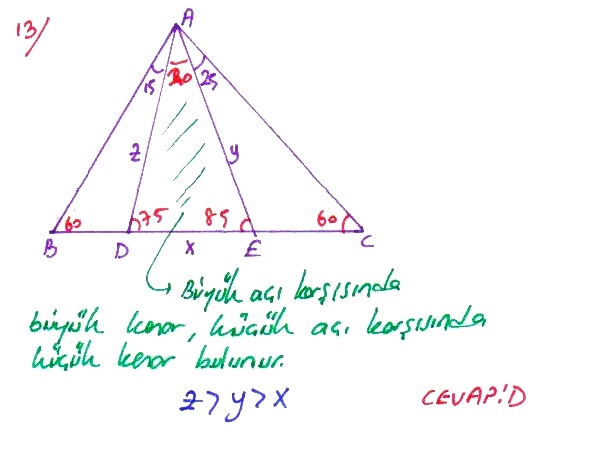 13/
A
15 20 25
z y
60 75 85 60
B D x E C
Büyük açı karşısında
büyük kenar, küçük açı karşısında
küçük kenar bulunur.
z > y > x
CEVAP: D